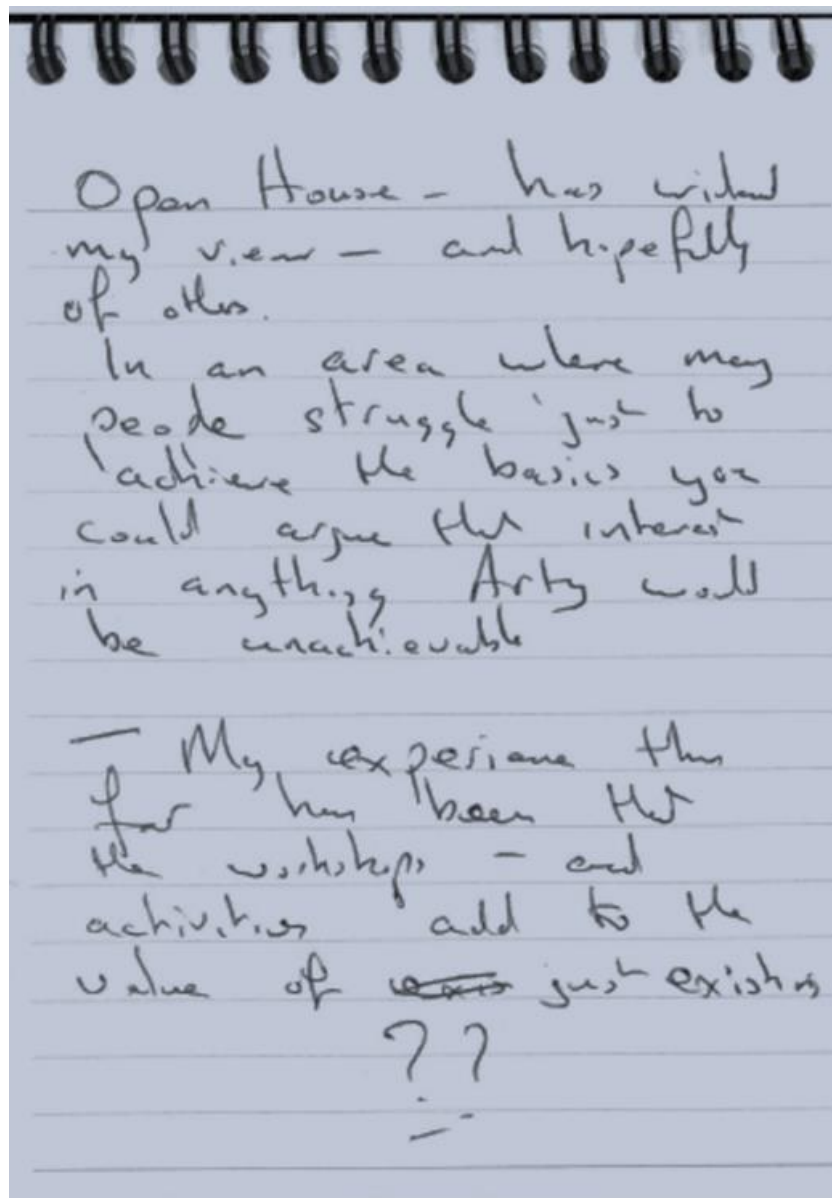 Open House - has widend
my view - and hopefully
of others.
In an area where many
people struggle just to
achieve the basics you
could argue that interest
in anything Arty would
be unachievable
- My experience thus
far has been that
the workshops - and
activities add to the
value of just existing
??